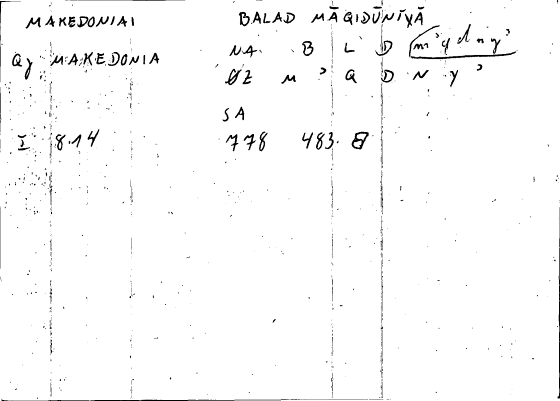 MAKEDONIAI BALAD MĀQIDŪNĪYĀ
NA B L D m'qdny'
Qy MAKEDONIA ØZ M ' Q D N Y '
SA
I 8.14 778 483.